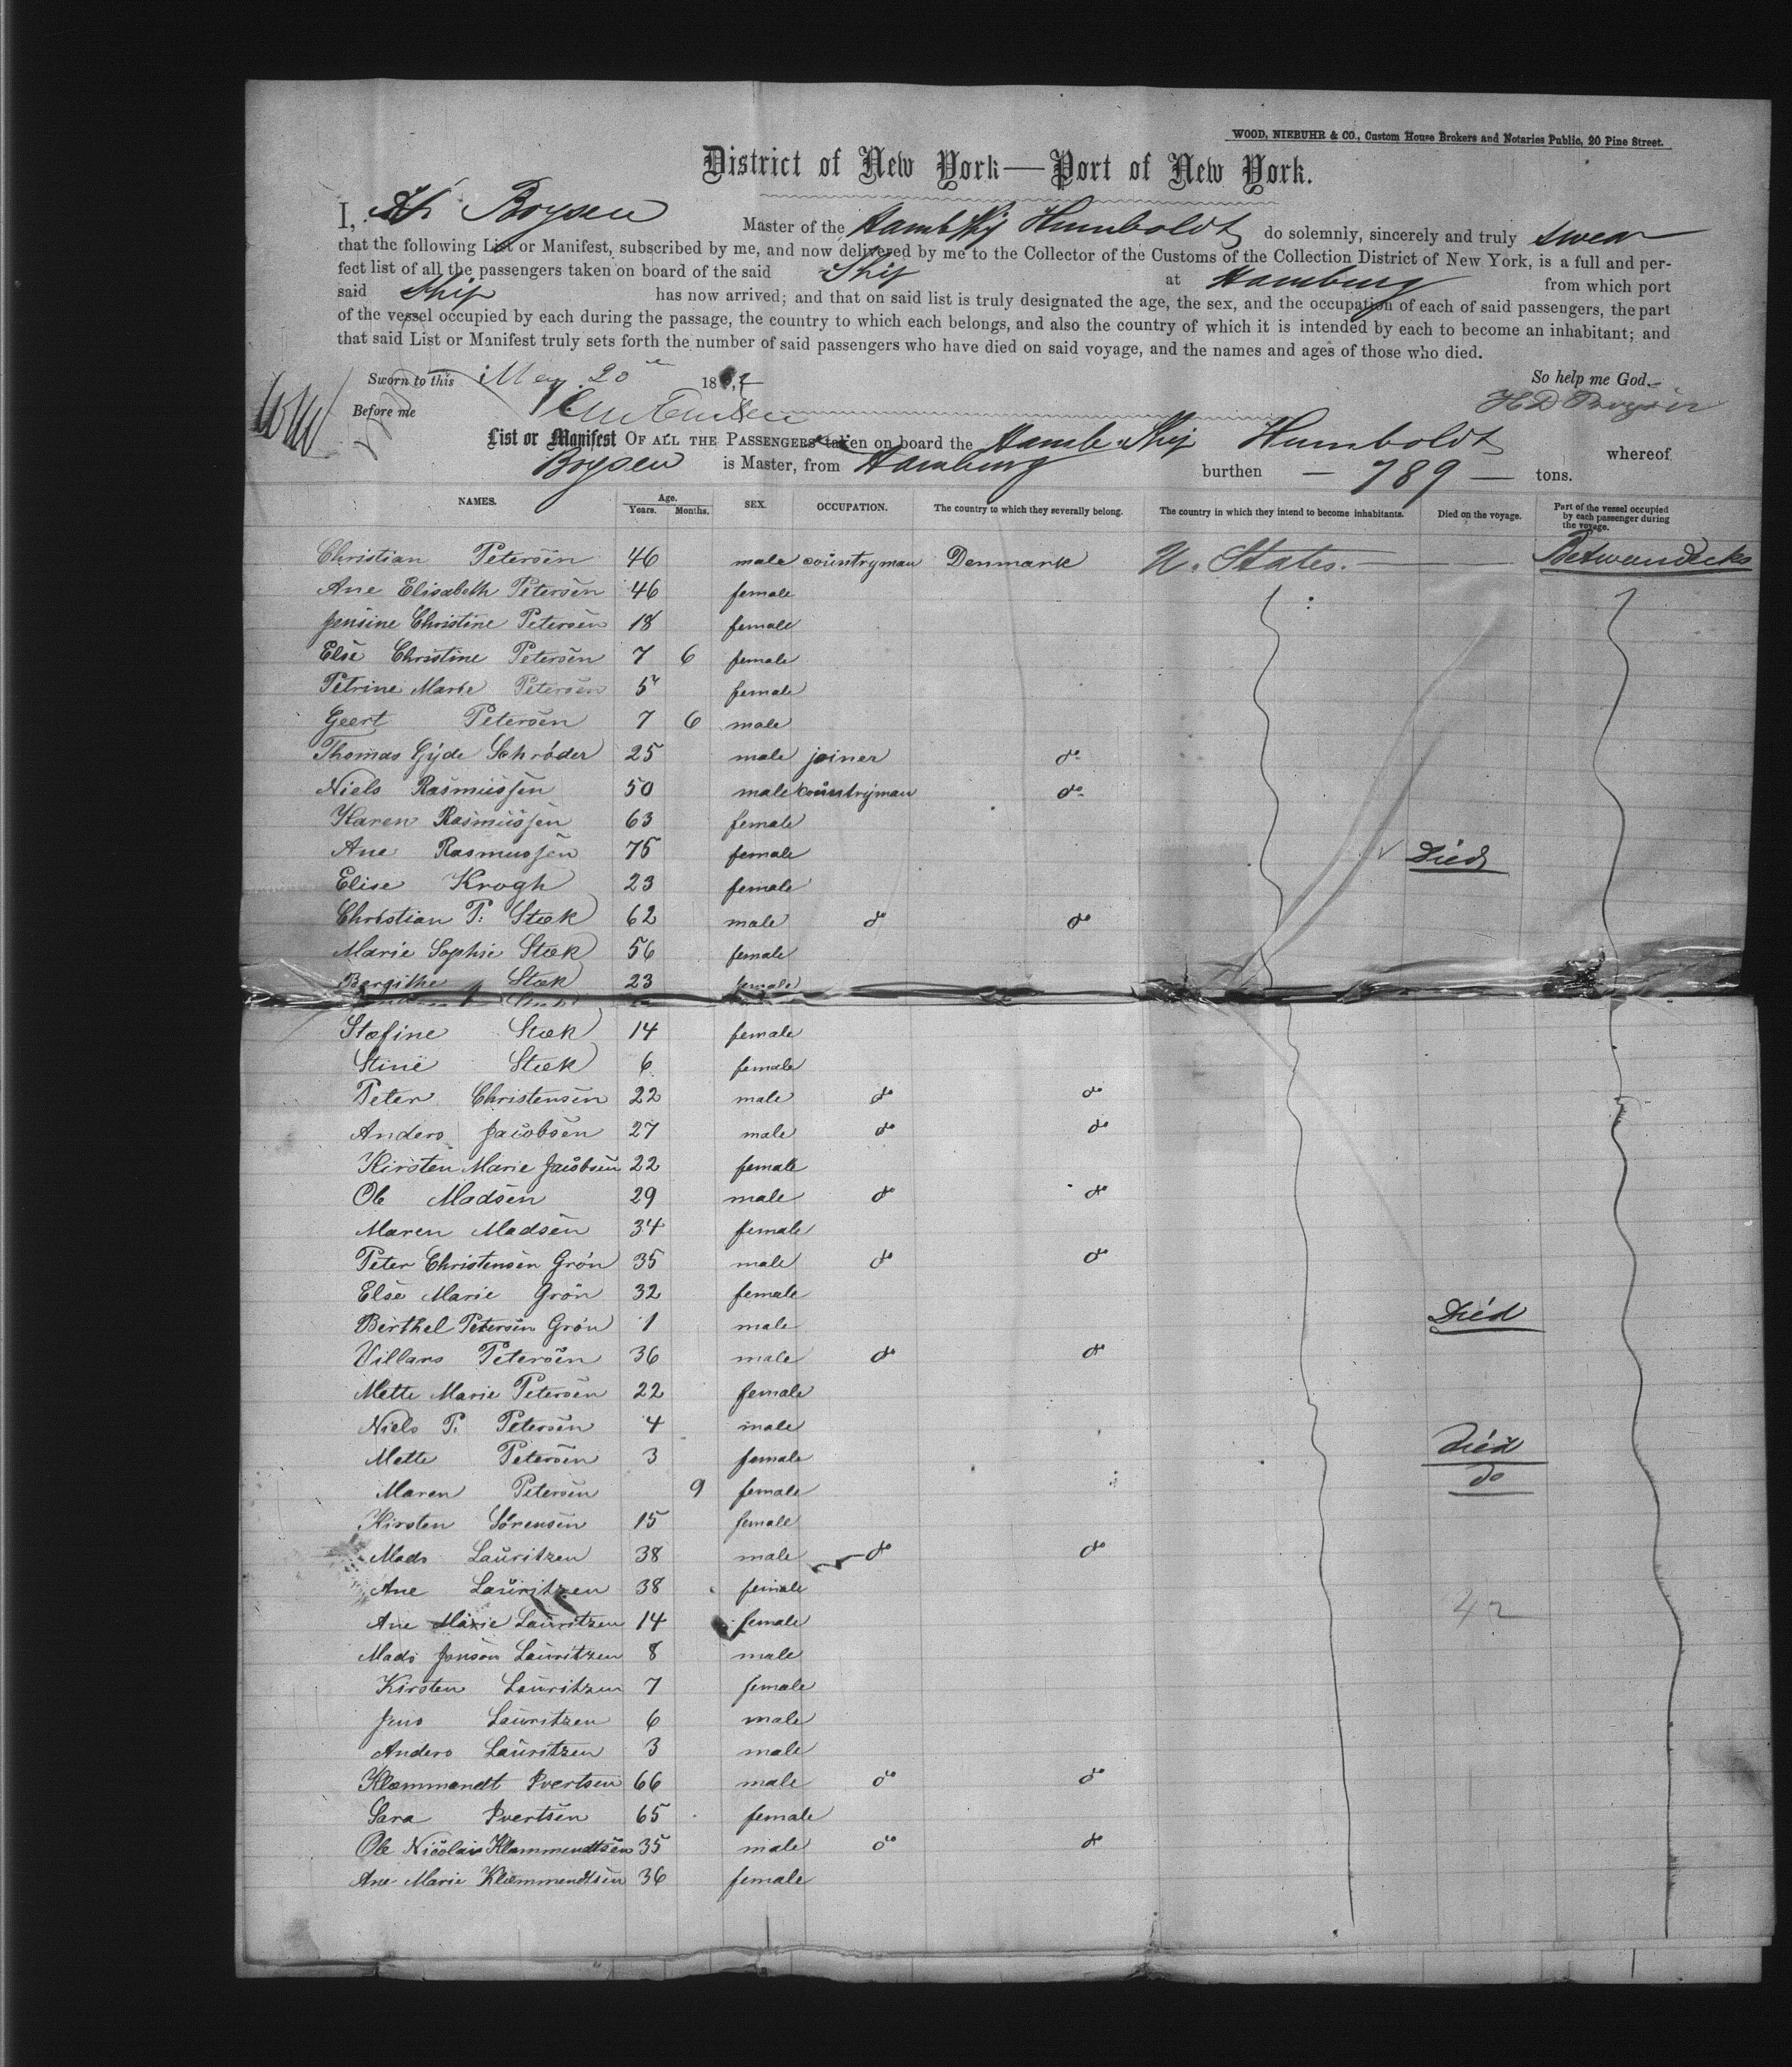 WOOD, NIEBUHR & CO., Custom House Brokers and Notaries Public, 20 Pine Street.
District of New York—Port of New York.
I, Boysen Master of the Hamb Ship Humboldt do solemnly, sincerely and truly swear
that the following List or Manifest, subscribed by me, and now delivered by me to the Collector of the Customs of the Collection District of New York, is a full and per-
fect list of all the passengers taken on board of the said Ship at Hamburg from which port
said Ship has now arrived; and that on said list is truly designated the age, the sex, and the occupation of each of said passengers, the part
of the vessel occupied by each during the passage, the country to which each belongs, and also the country of which it is intended by each to become an inhabitant; and
that said List or Manifest truly sets forth the number of said passengers who have died on said voyage, and the names and ages of those who died.
Sworn to this May 20 18 So help me God.
Before me H D Boysen
List or Manifest OF ALL THE PASSENGERS taken on board the Hamb Ship Humboldt whereof
Boysen is Master, from Hamburg burthen — 789 — tons.
NAMES. Age. Years. Months. SEX. OCCUPATION. The country to which they severally belong. The country in which they intend to become inhabitants. Died on the voyage. Part of the vessel occupied by each passenger during the voyage.
Christian Petersen 46 male countryman Denmark U. States. Betweendecks
Ane Elisabeth Petersen 46 female
Jensine Christine Petersen 18 female
Else Christine Petersen 7 6 female
Petrine Marie Petersen 5 female
Geert Petersen 7 6 male
Thomas Gyde Schröder 25 male joiner do
Niels Rasmussen 50 male countryman do
Karen Rasmussen 63 female
Ane Rasmussen 75 female Died
Elise Krogh 23 female
Christian P. Stæk 62 male do do
Marie Sophie Stæk 56 female
Bergithe Stæk 23 female
Stæfine Stæk 14 female
Stine Stæk 6 female
Peter Christensen 22 male do do
Anders Jacobsen 27 male do do
Kirsten Marie Jacobsen 22 female
Ole Madsen 29 male do do
Maren Madsen 34 female
Peter Christensen Grön 35 male do do
Else Marie Grön 32 female
Berthel Petersen Grön 1 male Died
Villars Petersen 36 male do do
Mette Marie Petersen 22 female
Niels P. Petersen 4 male
Mette Petersen 3 female Died
Maren Petersen 9 female do
Kirsten Sörensen 15 female
Mads Lauritzen 38 male do do
Ane Lauritzen 38 female
Ane Marie Lauritzen 14 female 42
Mads Jenson Lauritzen 8 male
Kirsten Lauritzen 7 female
Jens Lauritzen 6 male
Anders Lauritzen 3 male
Klemmendt Ivertsen 66 male do do
Sara Ivertsen 65 female
Ole Nicolais Klemmendtsen 35 male do do
Ane Marie Klemmendtsen 36 female